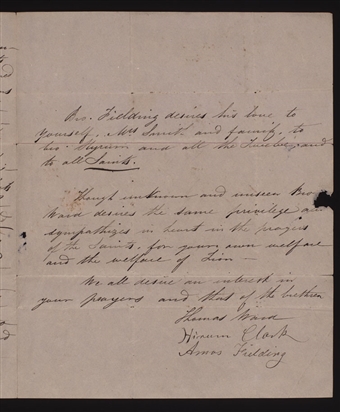 Bro. Fielding desires his love to
yourself, Mrs Smith and family, to
bro. Hyrum and all the Twelve, and
to all Saints.
Though unknown and unseen Bro
Ward desires the same privilege and
sympathizes in heart in the prayers
of the Saints, for your own welfare
and the welfare of Zion —
We all desire an interest in
your prayers and that of the brethren
Thomas Ward
Hiram Clark
Amos Fielding